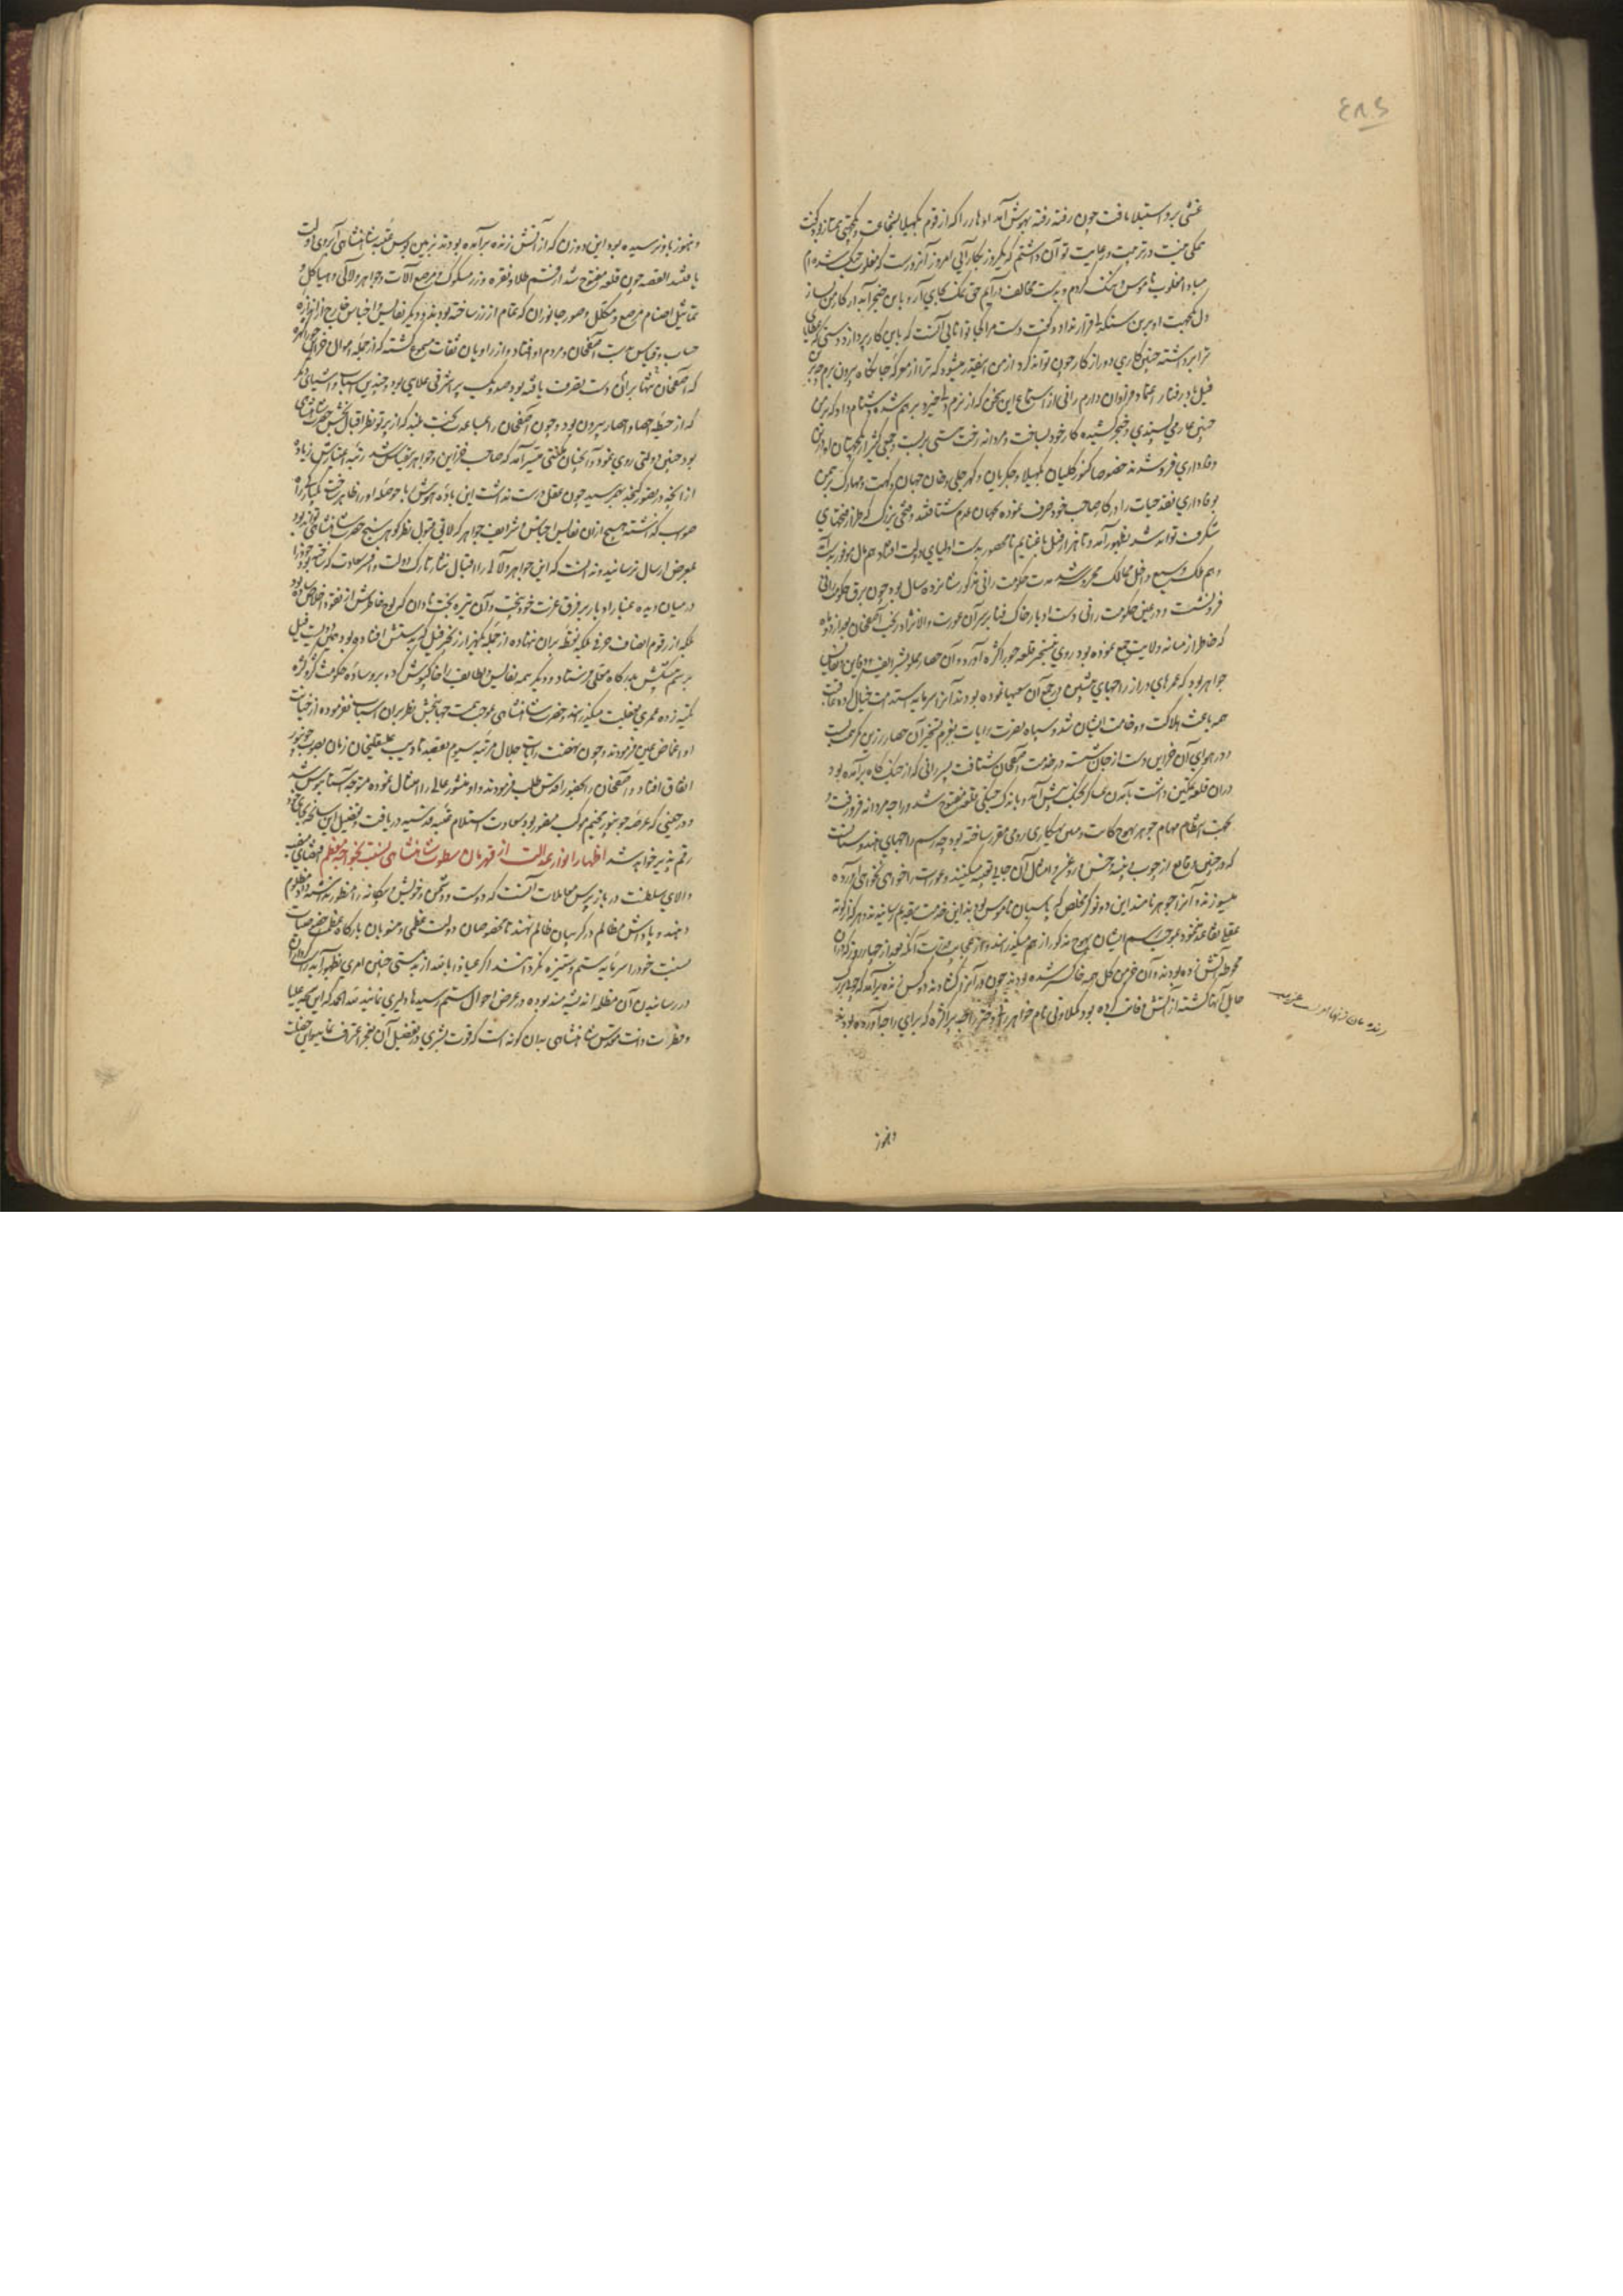 غشی برو استیلا یافت چون رفته رفته بهوش آمد ادهار را که از قوم بگهیلا بشجاعت و یکجهتی ممتاز بود گفت
همگی همت در تربیت و رعایت تو آن داشتم که یکروز بکار آیی امروز آنروزست که مغلوب جنگ شده‌ام
مبادا مغلوب ناموس و ننگ گردم و بدست مخالف درآیم حق نمک بجای آر و باین خنجر آبدار کار من بساز
دل بجهت او برین سنگدلی قرار نداد و گفت دست مرا کجا توانایی آنست که باین کار پردازد دستی که عطایای
ترا برداشته چنین کاری دور از کار چون تواند کرد از من اینقدر میشود که ترا ازین معرکه جانکاه بیرون برم چه برین
فیل باد رفتار اعتماد فراوان دارم رانی از استماع این سخن که از نرم دلی خیزد برهم شده دشنام داد که بر من
چنین عار می‌پسندی و خنجر کشیده کار خود بساخت و مردانه رخت هستی بربست و جمعی کثیر از یکجهتان او در آن
وفاداری فرو شدند خصوصا کنور کلیان بگهیلا و چکرمان و کهرجلی و خان جهان و
بوفاداری نقد حیات را در کار صاحب خود صرف نموده بجهان عدم شتافتند و فتحی بزرگ که طراز فتحهای
شگرف تواند شد بظهور آمد و تا هزار فیل با غنایم نامحصور بدست اولیای دولت افتاد هم مال موفور بدست آمد
و هم ملک وسیع داخل ممالک محروسه شد مدت حکومت رانی مذکور شانزده سال بود چون برق حکومت رانی
فرو نشست و در عین حکومت رانی دست ادبار خاک فنا بر سر آن عورت والانژاد ریخت آصفخان بعد از دو ماه
که خاطر از میانه ولایت جمع نموده بود روی تسخیر قلعه چوراگره آورد و آن حصار مملو بشرایف دفاین و نفایس
جواهر بود که عمرهای دراز راجهای پیشین در جمع آن سعیها نموده بودند آنرا سرمایه سلامت خیال کرده عاقبت
همه باعث هلاکت و وخامت ایشان شد و سپاه نصرت رایات بعزم تسخیر آن حصار رزین کمر همت بست
و در هوای آن خزاین دست از جان شسته در خدمت آصفخان شتافت پسر رانی که از جنگ گاه برآمده بود
در آن قلعه تمکین داشت با آمدن عساکر بجنگ پیش آمد و باندک جنگی قلعه مفتوح شد و راجه مردانه فرو رفت و
بجهت انتظام مهام جوهر بهوج کایت و میان بهکاری رومی مقرر ساخته بود چه رسم راجهای هندوستانست
که در چنین وقایع از چوب و پنبه و خس و روغن و امثال آن جایی تعبیه میکنند و عورات را خواهی نخواهی آورده
میسوزند و آنرا جوهر نامند این دو نوکر مخلص که پاسبان ناموس بودند این خدمت بتقدیم رسانیدند و هر که از کوته
عقلی تقاعد نمود بموجب رسم ایشان بهوج مذکور از هم میگذرانید و از عجایب قدرت آنکه بعد از چهار روز که در آن
محوطه آتش زده بودند و آن خرمن گل همه خاکستر شده بود چون در آنرا گشادند دو کس زنده برآمدند که چوب بزرگ
حایل آنها گشته از آتش وقایت کرده بود کملاوتی نام خواهر رانی و دختر راجه پراگره که برای راجا آورده بودند
و هنوز
و هنوز باو نرسیده بود این دو زن که از آتش زنده برآمده بودند بزمین بوس عتبه شاهنشاهی آبروی دولت
یافتند القصه چون قلعه مفتوح شد از قسم طلا و نقره و زر مسکوک و مرصع آلات و جواهر و لآلی و هیاکل و
تماثیل اصنام مرصع و مکلل و صور جانوران که تمام از زر ساخته بودند و دیگر نفایس و اجناس خارج از اندازه
حساب و قیاس بدست آصفخان و مردم او افتاد و از راویان ثقات مسموع گشته که از جمله اموال و خزاین چوراگره
که آصفخان تنها بر آن دست تصرف یافته بود صد دیگ پر اشرفی علایی بود و چندین اسباب و اشیای دیگر
که از حیطه احصا و احصار بیرون بود و چون آصفخان را بمساعدت بخت بلند که از پرتو نظر اقبال بخش حضرت شاهنشاهی
بود چنین دولتی روی نمود و آنچنان مکنتی میسر آمد که صاحب خزاین و جواهر بیقیاس شد رتبه اعتبارش زیاده
از آنچه در تصور گنجد بهم رسید چون عقل درست نداشت این باده هوش ربا حوصله او را ظاهر ساخت بلکه از راه
صواب گذشته هیچ ازان نفایس اجناس و شرایف جواهر که لایق قبول نظر گوهر سنج حضرت شاهنشاهی تواند بود
بمعرض ارسال نرسانید و ندانست که این جواهر و لآلی را در اقبال نثار تارک دولت و افسر سعادت
در میان دیده غبار ادبار بر فرق عزت خود بیخت و آن تیره بخت نادان
بلکه از رقوم انصاف حرفی بلکه نقطه بر آن ننهاده از جمله یکهزار زنجیر فیل که بدستش افتاده بود همین دویست فیل
برسم پیشکش بدرگاه معلی فرستاد و دیگر همه نفایس و لطایف را خاکپوش کرد و بر وساده حکومت گره کتنکه
تکیه زده عمری بغفلت میگذرانید و حضرت شاهنشاهی بموجب همت جهانبخش نظر بر آن اسباب نفرموده از خیانت
او اغماض عین فرمودند و چون نهضت رایات جلال مرتبه سیوم بقصد تادیب علیقلیخان زمان بصوب جونپور
اتفاق افتاد و آصفخان را بحضور اقدس طلب فرمودند و او منشور عالی را امتثال نموده متوجه آستانبوس شد
و در حینی که عرصه جونپور مخیم موکب منصور بود سعادت استلام عتبه قدسیه دریافت و تفصیل این سانحه بجای خود
رقم پذیر خواهد شد اظهار انوار عدالت از قهرمان سطوت شاهنشاهی نسبت بخواجه معظم اقتضای منصب
والای سلطنت در بازپرس معاملات آنست که دوست و دشمن و خویش و بیگانه را منظور نداشته داد مظلوم
دهند و پاداش مظالم در گریبان ظالم نهند تا مخصوصان دولت عظمی و منسوبان بارگاه عظمت خصوصیات
نسبت خود را سرمایه ستم و ستیزه نگردانند اگر عیاذا بالله از بدمستی چنین امری بظهور آید
در رسانیدن آن مظلمه اندیشه مند بوده در عرض احوال ستم رسیدها دلیری نمایند لله الحمد که این شیمه علیا
و فطرت ذات مقدس شاهنشاهی بدان گونه است که قوت بشری در تفصیل آن بعجز اعتراف نماید